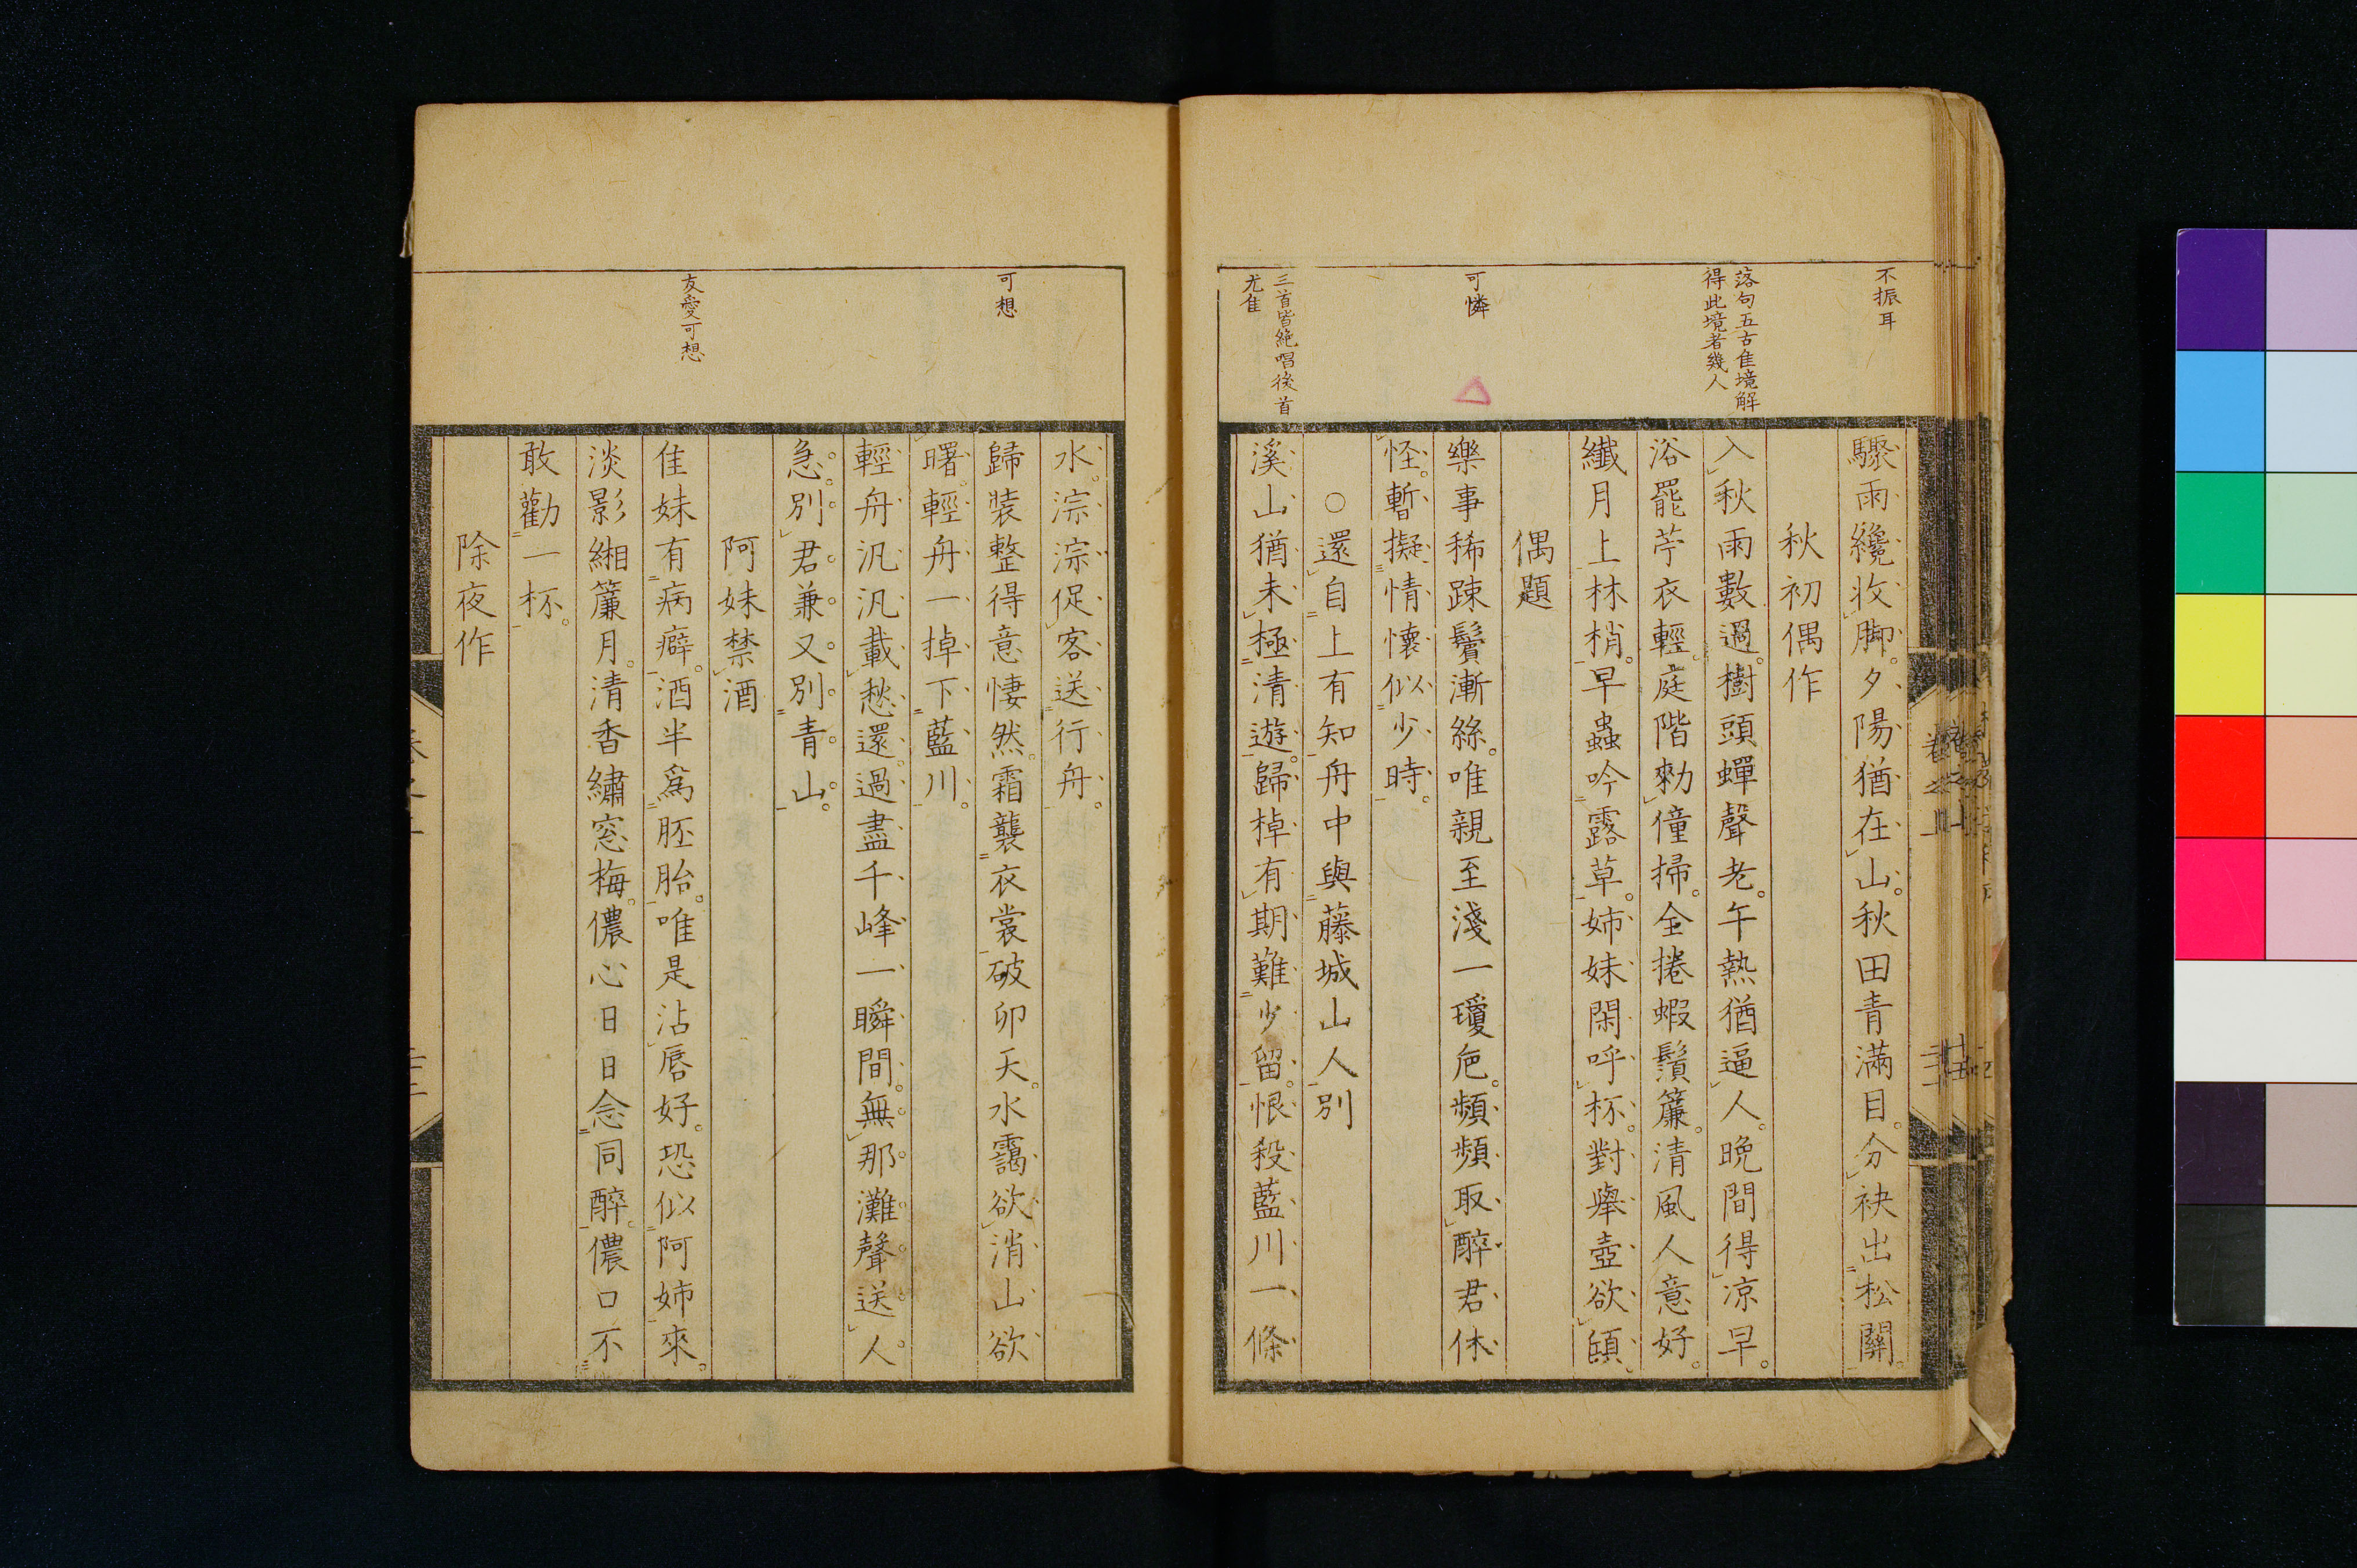 不振耳
落句五古佳境解
得此境者幾人
可憐
三首皆絶唱後首
尤佳
驟雨纔收脚。夕陽猶在山。秋田青滿目。分袂出松關。
秋初偶作
入秋雨數過。樹頭蟬聲老。午熱猶逼人。晩間得凉早。
浴罷苧衣輕。庭階勑僮掃。全捲蝦鬚簾。清風人意好。
纎月上林梢。早蟲吟露草。姉妹閑呼杯。對擧壺欲頎。
偶題
樂事稀踈鬢漸絲。唯親至淺一瓊巵。頻頻取醉君休
怪。暫擬情懷似少時。
○還自上有知舟中與藤城山人別
溪山猶未極清遊。歸棹有期難少留。恨殺藍川一條
可想
友愛可想
水。淙淙促客送行舟。
歸裝整得意悽然。霜襲衣裳破卯天。水靄欲消山欲
曙。輕舟一掉下藍川。
輕舟汎汎載愁還。過盡千峰一瞬間。無那灘聲送人
急。別君兼又別青山。
阿妹禁酒
佳妹有病癖。酒半爲胚胎。唯是沾唇好。恐似阿姉來。
淡影緗簾月。清香繡窓梅。儂心日日念同醉。儂口不
敢勸一杯。
除夜作